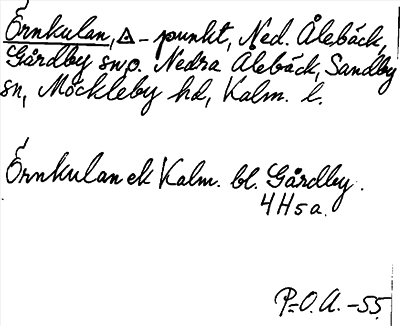 Örnkulan, △ - punkt, Ned. Ålebäck,
Gårdby sn, o. Nedra Ålebäck, Sandby
sn, Möckleby hd, Kalm. l.
Örnkulan ek Kalm. bl. Gårdby.
4H5a.
P-O.A. -55